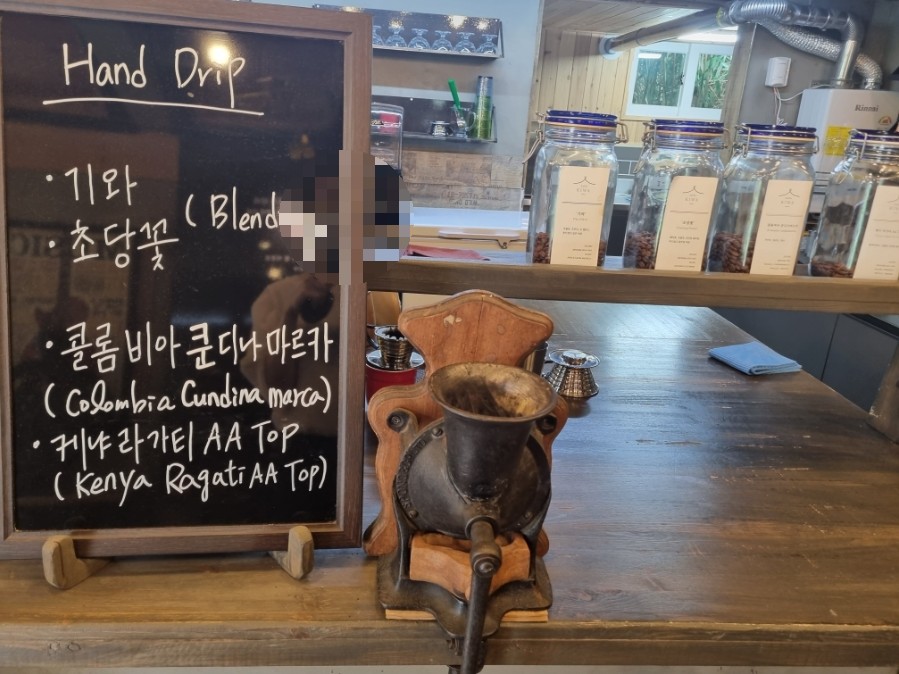 Hand Drip
· 기와
(Blend
· 초당꽃
· 콜롬비아 쿤디나마르카
(Colombia Cundinamarca)
· 케냐 라가티 AA TOP
(Kenya Ragati AA TOP)
Rinnai